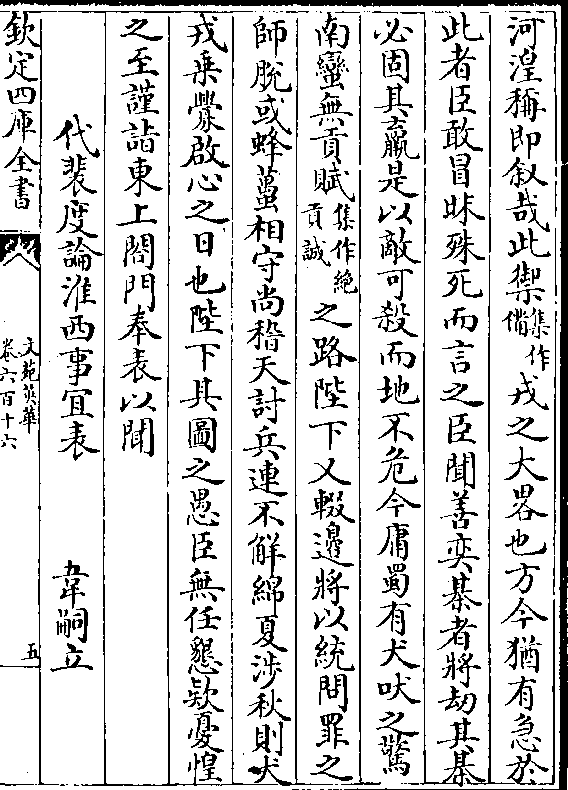 河湟稱即叙哉此禦集作備戎之大畧也方今猶有急於
此者臣敢冒昧殊死而言之臣聞善奕棊者將劫其棊
必固其羸是以敵可殺而地不危今庸蜀有犬吠之驚
南蠻無貢賦集作絶貢誠之路陛下乂輟邉將以統問罪之
師脱或蜂蠆相守尚稽天討兵連不解綿夏涉秋則犬
戎乗釁啟心之日也陛下其圖之愚臣無任懇欵憂惶
之至謹詣東上閤門奉表以聞
代裴度論淮西事冝表 韋嗣立
欽定四庫全書
文苑英華
卷六百十六
五